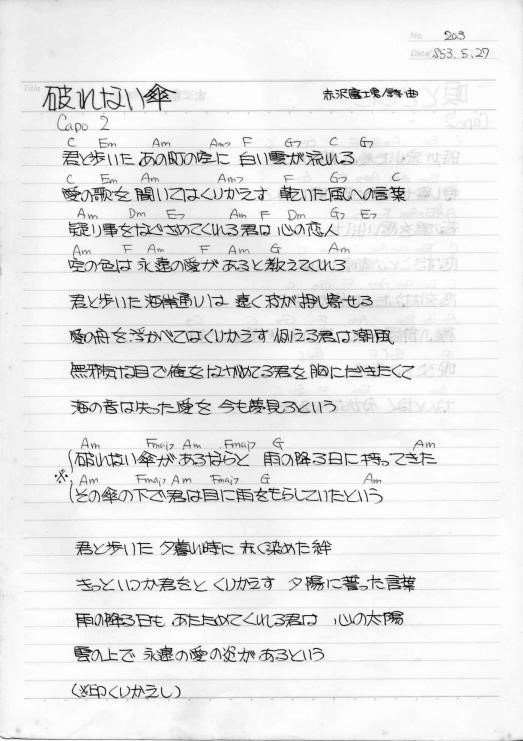 No. 203
Date S53.5.27
Title
破れない傘
赤沢富士男/詩・曲
Capo 2
C Em Am Am7 F G7 C G7
君と歩いた あの町の空に 白い雲が流れる
C Em Am Am7 F G7 C
愛の歌を 聞いてはくりかえす 乾いた風への言葉
Am Dm E7 Am F Dm G7 E7
疑り事をなぐさめてくれる君は 心の恋人
Am F Am F Am G Am
空の色は 永遠の愛が あると教えてくれる
君と歩いた 海岸通りは 遠く波が押し寄せる
愛の舟を浮かべてはくりかえす 伝える君は潮風
無邪気な目で俺をながめてる君を胸にだきたくて
海の音は失った愛を 今も夢見るという
Am Fmaj7 Am Fmaj7 G Am
※(破れない傘が あるならと 雨の降る日に 持ってきた
Am Fmaj7 Am Fmaj7 G Am
(その傘の下で君は目に雨をもらしていたという
君と歩いた 夕暮い時に 赤く染めた絆
きっといつか君をと くりかえす 夕陽に誓った言葉
雨の降る日も あたためてくれる君は 心の太陽
雲の上で 永遠の愛の炎があるという
(※印くりかえし)